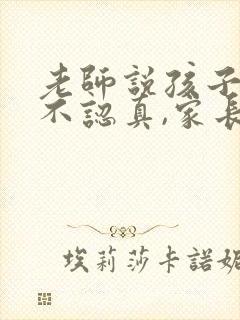 老師說孩子
不認真,家長
埃莉莎卡諾妮